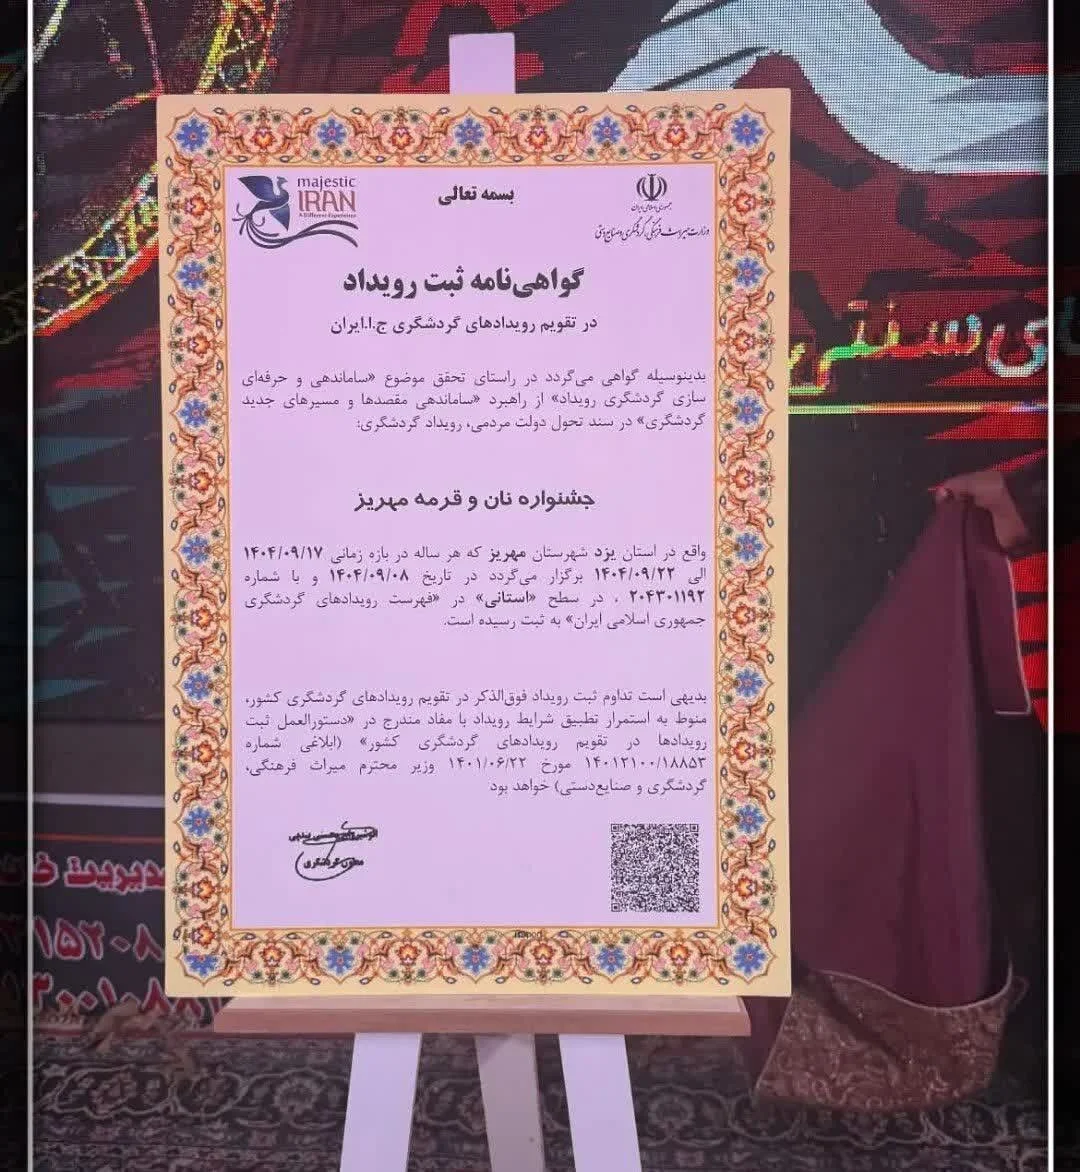 majestic
IRAN
A Different Experience
بسمه تعالی
جمهوری اسلامی ایران
وزارت میراث فرهنگی، گردشگری و صنایع دستی
گواهی‌نامه ثبت رویداد
در تقویم رویدادهای گردشگری ج.ا.ایران
بدینوسیله گواهی می‌گردد در راستای تحقق موضوع «ساماندهی و حرفه‌ای
سازی گردشگری رویداد» از راهبرد «ساماندهی مقصدها و مسیرهای جدید
گردشگری» در سند تحول دولت مردمی، رویداد گردشگری:
جشنواره نان و قرمه مهریز
واقع در استان یزد شهرستان مهریز که هر ساله در بازه زمانی ۱۴۰۴/۰۹/۱۷
الی ۱۴۰۴/۰۹/۲۲ برگزار می‌گردد در تاریخ ۱۴۰۴/۰۹/۰۸ و با شماره
۲۰۴۳۰۱۱۹۲ ، در سطح «استانی» در «فهرست رویدادهای گردشگری
جمهوری اسلامی ایران» به ثبت رسیده است.
بدیهی است تداوم ثبت رویداد فوق‌الذکر در تقویم رویدادهای گردشگری کشور،
منوط به استمرار تطبیق شرایط رویداد با مفاد مندرج در «دستورالعمل ثبت
رویدادها در تقویم رویدادهای گردشگری کشور» (ابلاغی شماره
۱۴۰۱۲۱۰۰/۱۸۸۵۳ مورخ ۱۴۰۱/۰۶/۲۲ وزیر محترم میراث فرهنگی،
گردشگری و صنایع‌دستی) خواهد بود
معاون گردشگری
سنتی
مدیریت